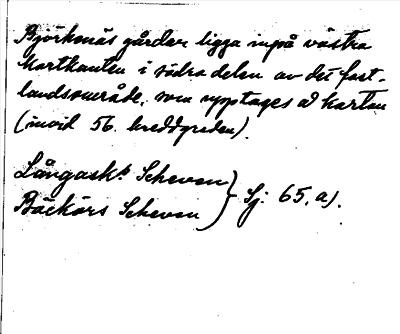 Björkenäs gårdar ligga inpå västra
kartkanten i södra delen av det fast-
landsområde, som upptages å kartan
(invid 56. breddgraden).
Långask⁠s Scheven } Sj: 65, a).
Bäckörs Scheven